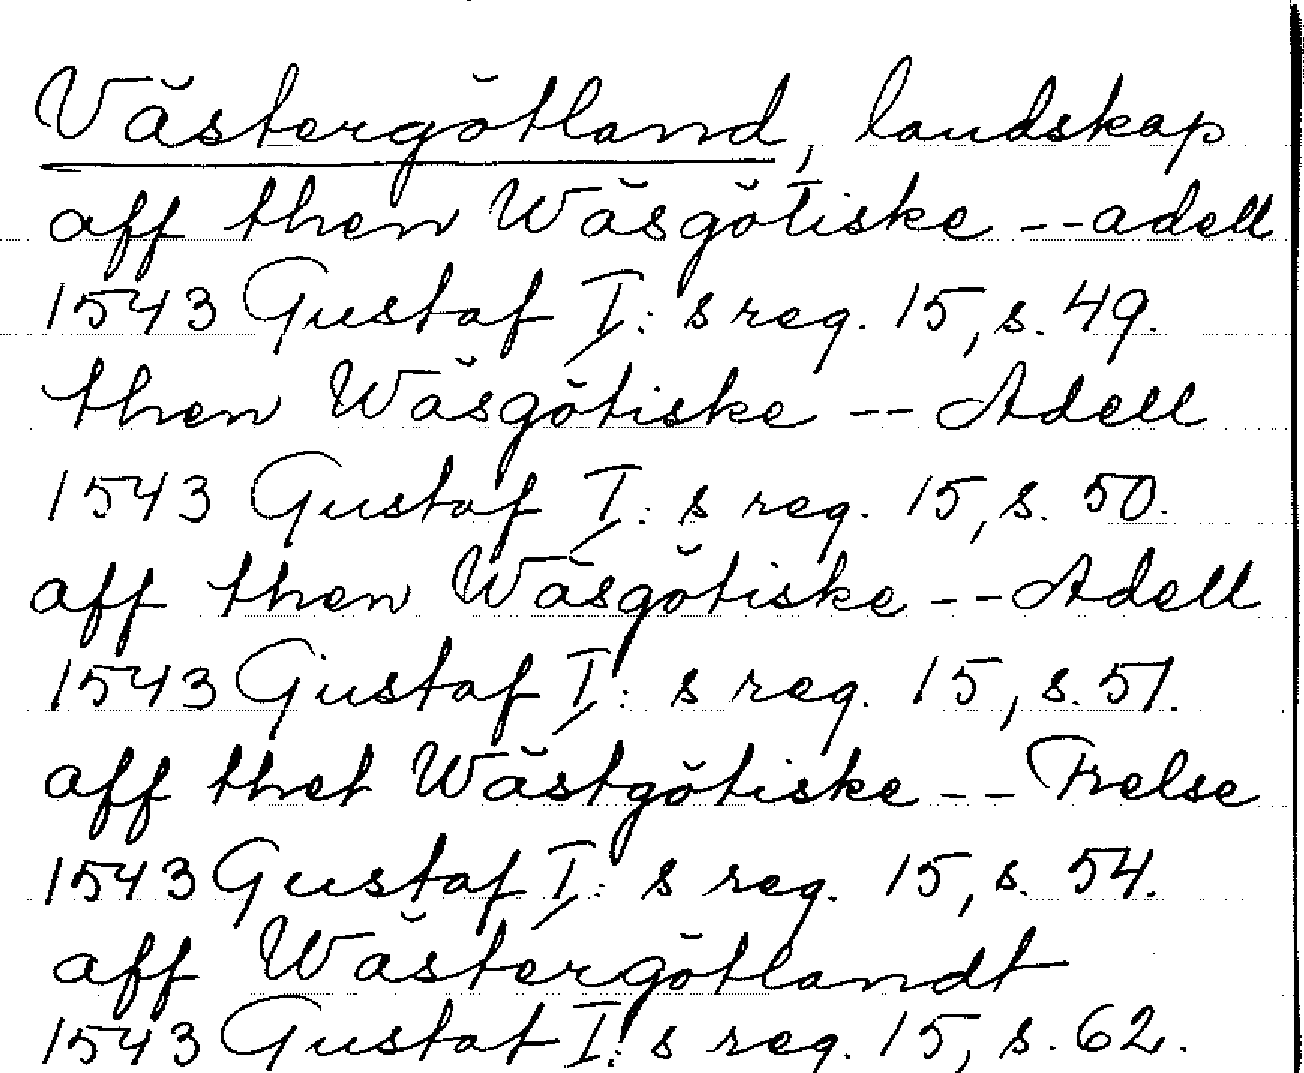 Västergötland, landskap
aff then Wäsgötiske -- adell
1543 Gustaf I: s reg. 15, s. 49.
then Wäsgötiske -- Adell
1543 Gustaf I: s reg. 15, s. 50.
aff then Wäsgötiske -- Adell
1543 Gustaf I: s reg. 15, s. 51.
aff thet Wästgötiske -- Frelse
1543 Gustaf I: s reg. 15, s. 54.
aff Wästergötlandt
1543 Gustaf I: s reg. 15, s. 62.